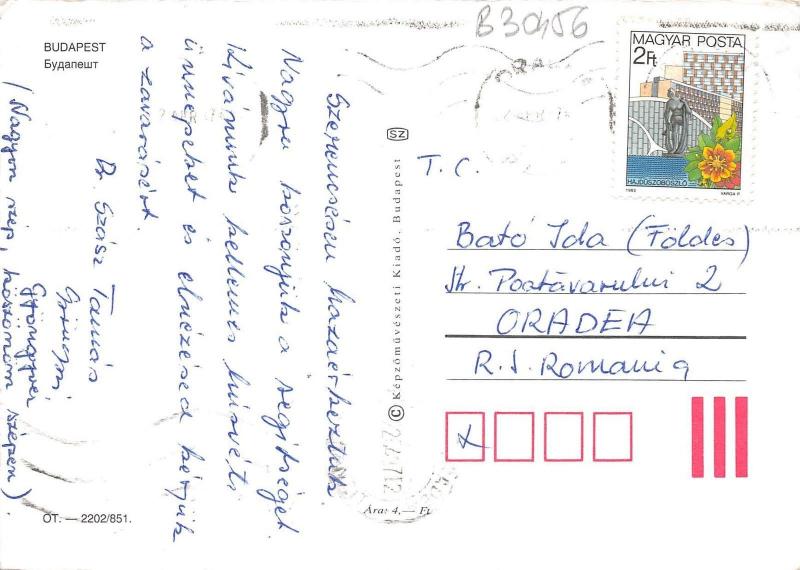 BUDAPEST
Будапешт
B30456
MAGYAR POSTA
2Ft
HAJDÚSZOBOSZLÓ
1983
VARGA P.
Szerencsésen hazaérkeztünk
Nagyon köszönjük a segítséget.
Kívánunk kellemes húsvéti
ünnepeket és elnézésed kérjük
a zavarásért.
Dr. Szász Tamás
Gyöngyi
Gyöngyvér
(Nagyon szép, köszönöm szépen).
SZ
© Képzőművészeti Kiadó, Budapest
T. C.
Bató Ida (Földes)
Str. Postăvarului 2
ORADEA
R. S. Romania
Ára: 4,— Ft
OT. — 2202/851.